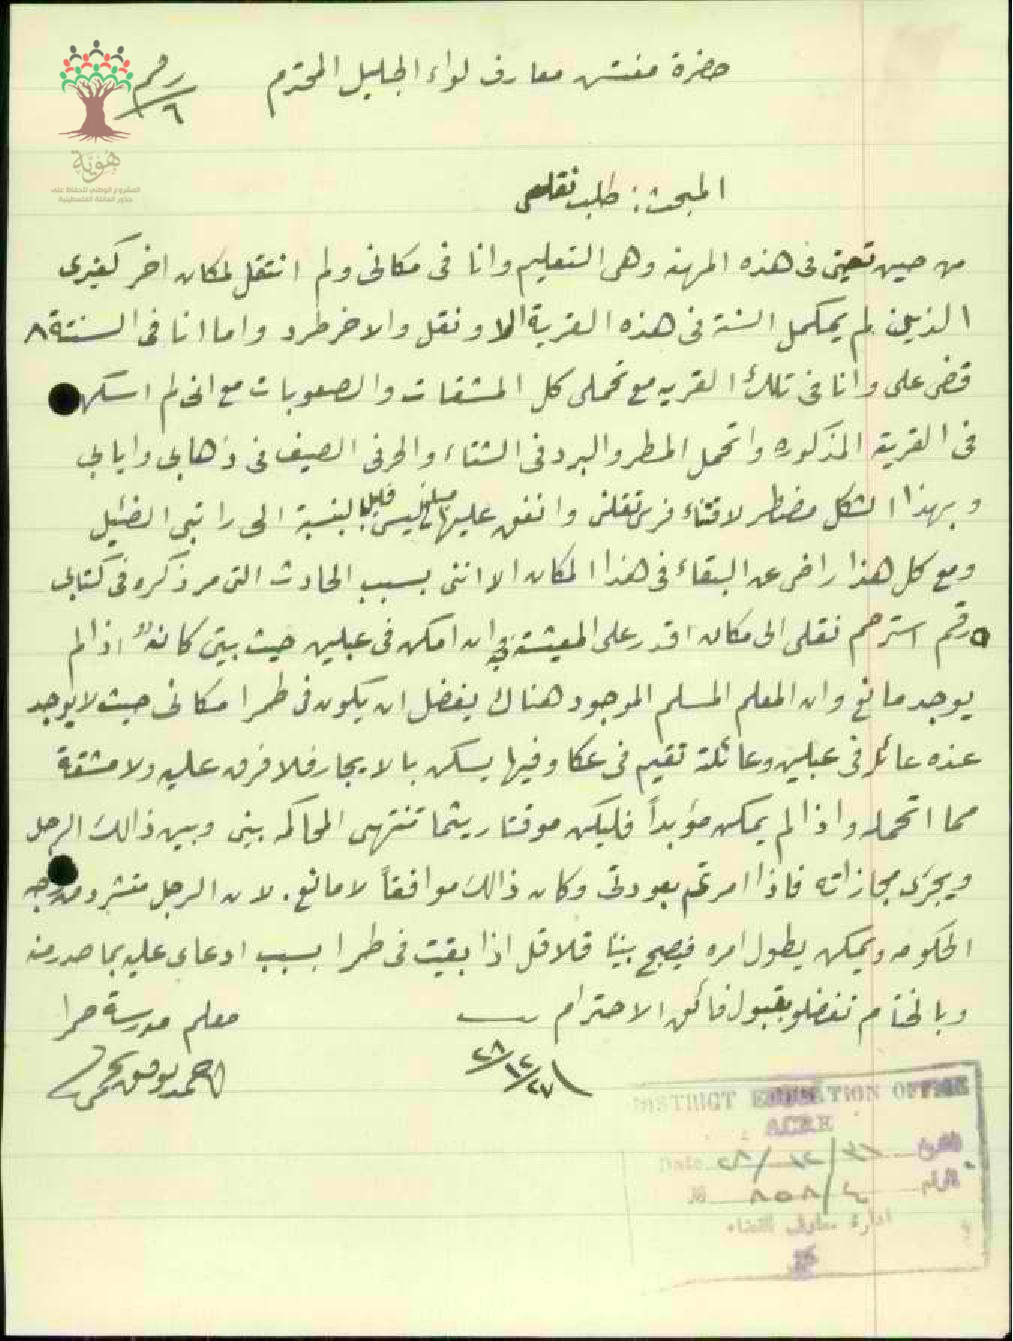 حضرة مفتش معارف لواء الجليل المحترم
رقم ٦
هُوِيَّة
المشروع الوطني للحفاظ على
جذور العائلة الفلسطينية
المبحث: طلب نقلي
من حين تعييني في هذه المهنة وهي التعليم وانا في مكاني ولم انتقل لمكان اخر كغيري
الذين لم يكمل السنة في هذه القرية الا ونقل والاخر طرد واما انا في السنة ٨
قضى علي وانا في تلك القريه مع تحملي كل المشقات والصعوبات مع اني لم اسكن
في القرية المذكوره واتحمل المطر والبرد في الشتاء والحر في الصيف في ذهابي وايابي
وبهذا الشكل مضطر لاقتناء فرس تنقلني وانفق عليها مبلغ ليس قليلا بالنسبة الى راتبي الضئيل
ومع كل هذا راض عن البقاء في هذا المكان الا انني بسبب الحادث التي مر ذكره في كتابي
رقم ٥ استرحم نقلي الى مكان اقدر على المعيشة فيه ان امكن في عبلين حيث بيتي كائن اذا لم
يوجد مانع وان المعلم المسلم الموجود هناك يفضل ان يكون في طمرا مكاني حيث لا يوجد
عنده عائله في عبلين وعائلته تقيم في عكا وفيها يسكن بالايجار فلا فرق عليه ولا مشقة
مما اتحمله واذا لم يمكن مؤبداً فليكن موقتا ريثما تنتهي المحاكمه بيني وبين ذالك الرجل
ويجرى مجازاته فاذا امرتم بعودتي وكان ذالك موافقاً لا مانع. لان الرجل متشرد من وجه
الحكومه ويمكن يطول امره فيصبح بيننا قلاقل اذا بقيت في طمرا بسبب ادعاي عليه بما صدر منه
وبالختام تفضلو بقبول فائق الاحترام
معلم مدرسة طمرا
٢٧/١٢/٢٨
احمد توفيق
DISTRICT EDUCATION OFFICE
ACRE
Date ٢٨/١٢/٣١ التاريخ
№ ٨٥٨/٤ الرقم
ادارة معارف القضاء
عكا